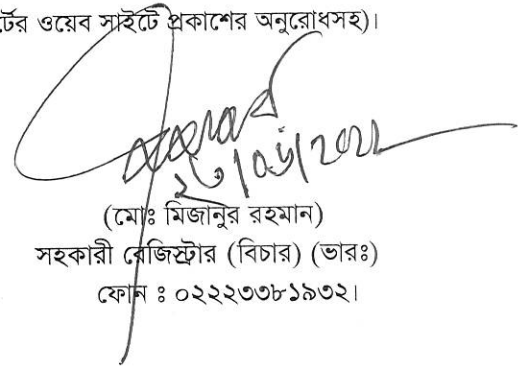 র্টের ওয়েব সাইটে প্রকাশের অনুরোধসহ)।
(মোঃ মিজানুর রহমান)
সহকারী রেজিস্ট্রার (বিচার) (ভারঃ)
ফোন ঃ ০২২২৩৩৮১৯৩২।